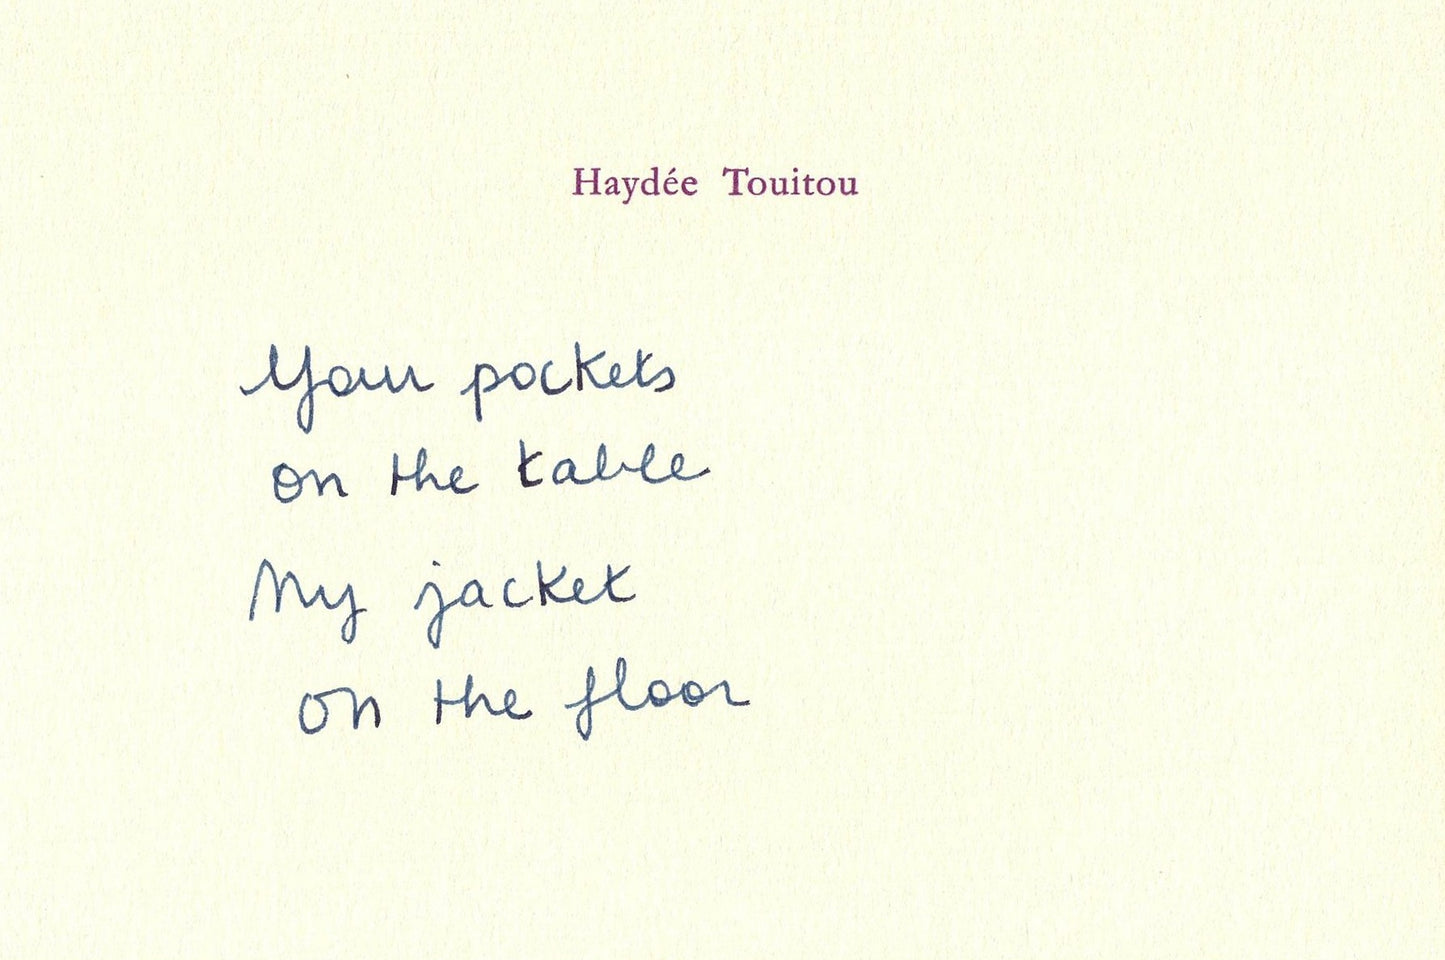 Haydée Touitou
Your pockets
on the table
My jacket
on the floor